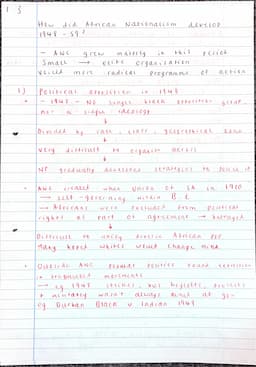 1 3
How did African Nationalism develop
1948 - 59?
- ANC grew mainly in this period
Small → elite organisation
used more radical programme of action
1) Political opposition in 1948
- 1948 - No single black opposition group
not a single ideology
↓
Divided by race, class, geographical
↓
very difficult to organise
↓
NP gradually developed strategies to
• ANC created when Union of SA in 1910
→ self-governing within B E
→ Africans were excluded from political
rights as part of agreement → betrayed
↓
Difficult to unify diverse African ppl
Many hoped whites would change mind
• Outside ANC formal politics
+ movements
→ eg 1946 strikes, bus boycotts,
+ militancy wasn't always aimed at
eg. Durban Black v Indian 1949